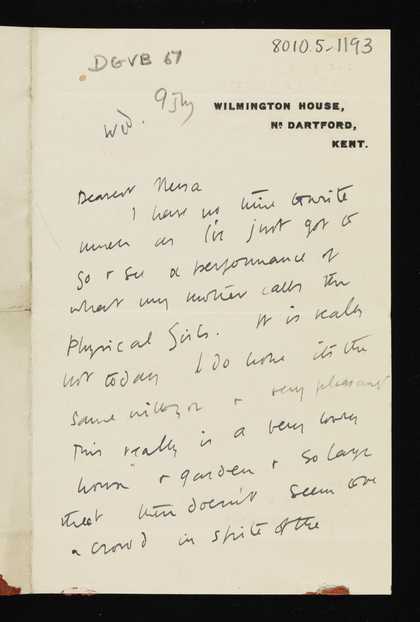 DGVB 67
8010.5-1193
Wed. 9 July
WILMINGTON HOUSE,
Nr DARTFORD,
KENT.
Dearest Nessa
I have no time to write
much as I've just got to
go & see a performance of
what my mother calls the
Physical Girls. It is really
hot today I do hope its the
same with you & very pleasant
This really is a very lovely
house & garden & so large
that there doesn't seem to be
a crowd in spite of the